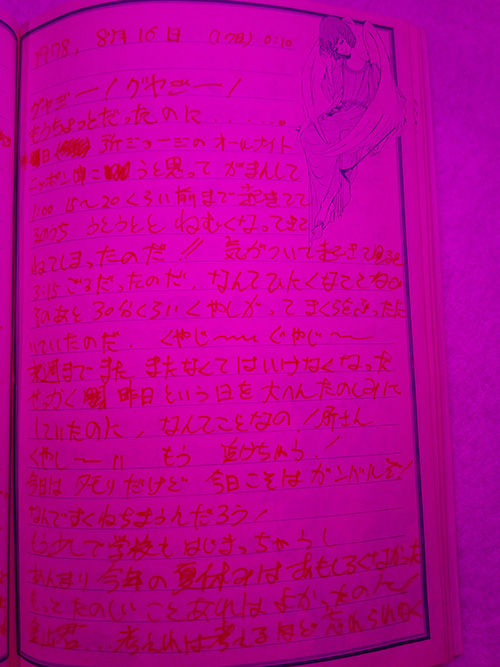 1978, 8月16日 (17日) 0:10
グヤジー!グヤジー!
もうちょっとだったのに......。
日 所ジョージのオールナイト
ニッポン うと思って がまんして
1:00 15〜20くらい前まで起きてて
そのうち うとうとと ねむくなってきて
ねてしまったのだ!! 気がついて
3:15ごろだったのだ。なんて
そのあと30分くらいくやしがって まくらを
いたのだ. くやじ〜〜 ぐやじ〜〜
来週までまた またなくてはいけなくなった
せっかく 昨日という日を大へんたのしみに
していたのに, なんてことなの!所さん
くやし〜!! もう 泣けちゃう!
今日はタモリだけど 今日こそはガンバルぞ!
なんですぐねちまうんだろう!
もう少しで学校もはじまっちゃうし
あんまり今年の夏休みはおもしろくなかった
もっとたのしいことあればよかったのに!
君...考えれば考えるほど忘れられなく